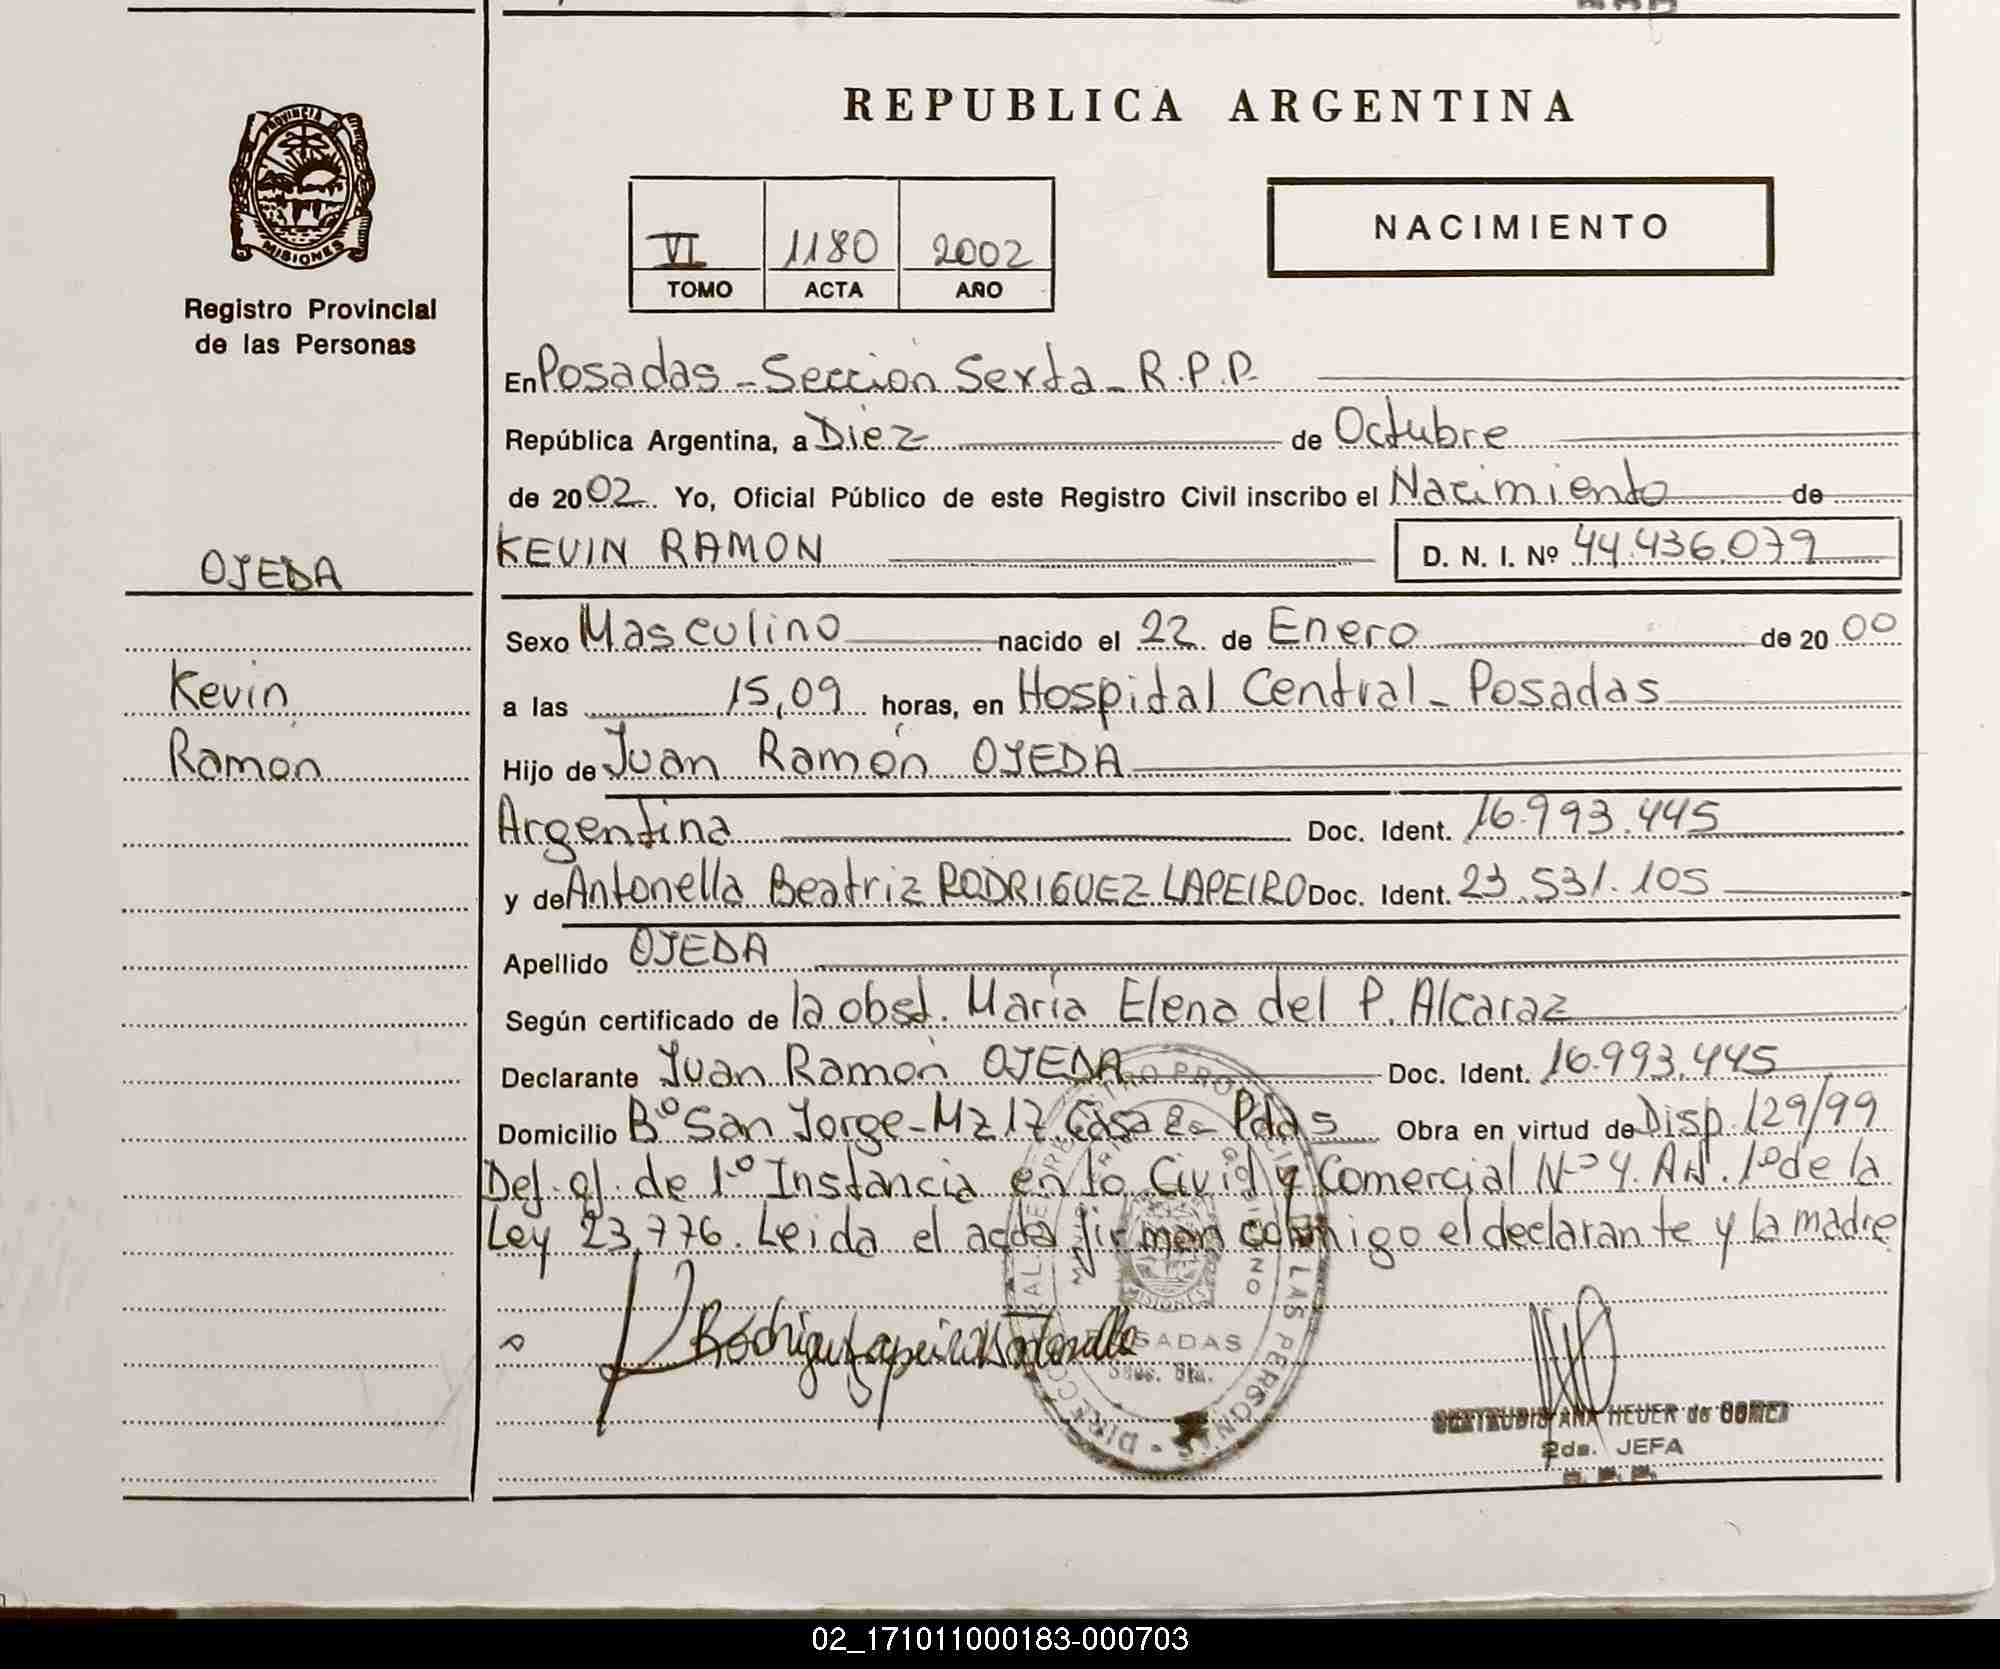 PROVINCIA DE
MISIONES
Registro Provincial
de las Personas
OJEDA
Kevin
Ramón
REPUBLICA ARGENTINA
VI 1180 2002
TOMO ACTA AÑO
NACIMIENTO
En Posadas - Sección Sexta - R.P.P.
República Argentina, a Diez de Octubre
de 2002 Yo, Oficial Público de este Registro Civil inscribo el Nacimiento de
KEVIN RAMON D. N. I. Nº 44.436.079
Sexo Masculino nacido el 22 de Enero de 2000
a las 15,09 horas, en Hospital Central - Posadas
Hijo de Juan Ramón OJEDA
Argentina Doc. Ident. 16.993.445
y de Antonella Beatriz RODRIGUEZ LAPEIRO Doc. Ident. 23.531.105
Apellido OJEDA
Según certificado de la obst. María Elena del P. Alcaraz
Declarante Juan Ramón OJEDA Doc. Ident. 16.993.445
Domicilio Bº San Jorge - Mz 17 Casa 2 - Pdas Obra en virtud de Disp. 129/99
Def. of. de 1º Instancia en lo Civil y Comercial Nº 4. Art. 1º de la
Ley 23.776. Leida el acta firman conmigo el declarante y la madre
POSADAS
GERTRUDIS ANA HEUER de GOMEZ
2da. JEFA
R. P. P.
02_171011000183-000703